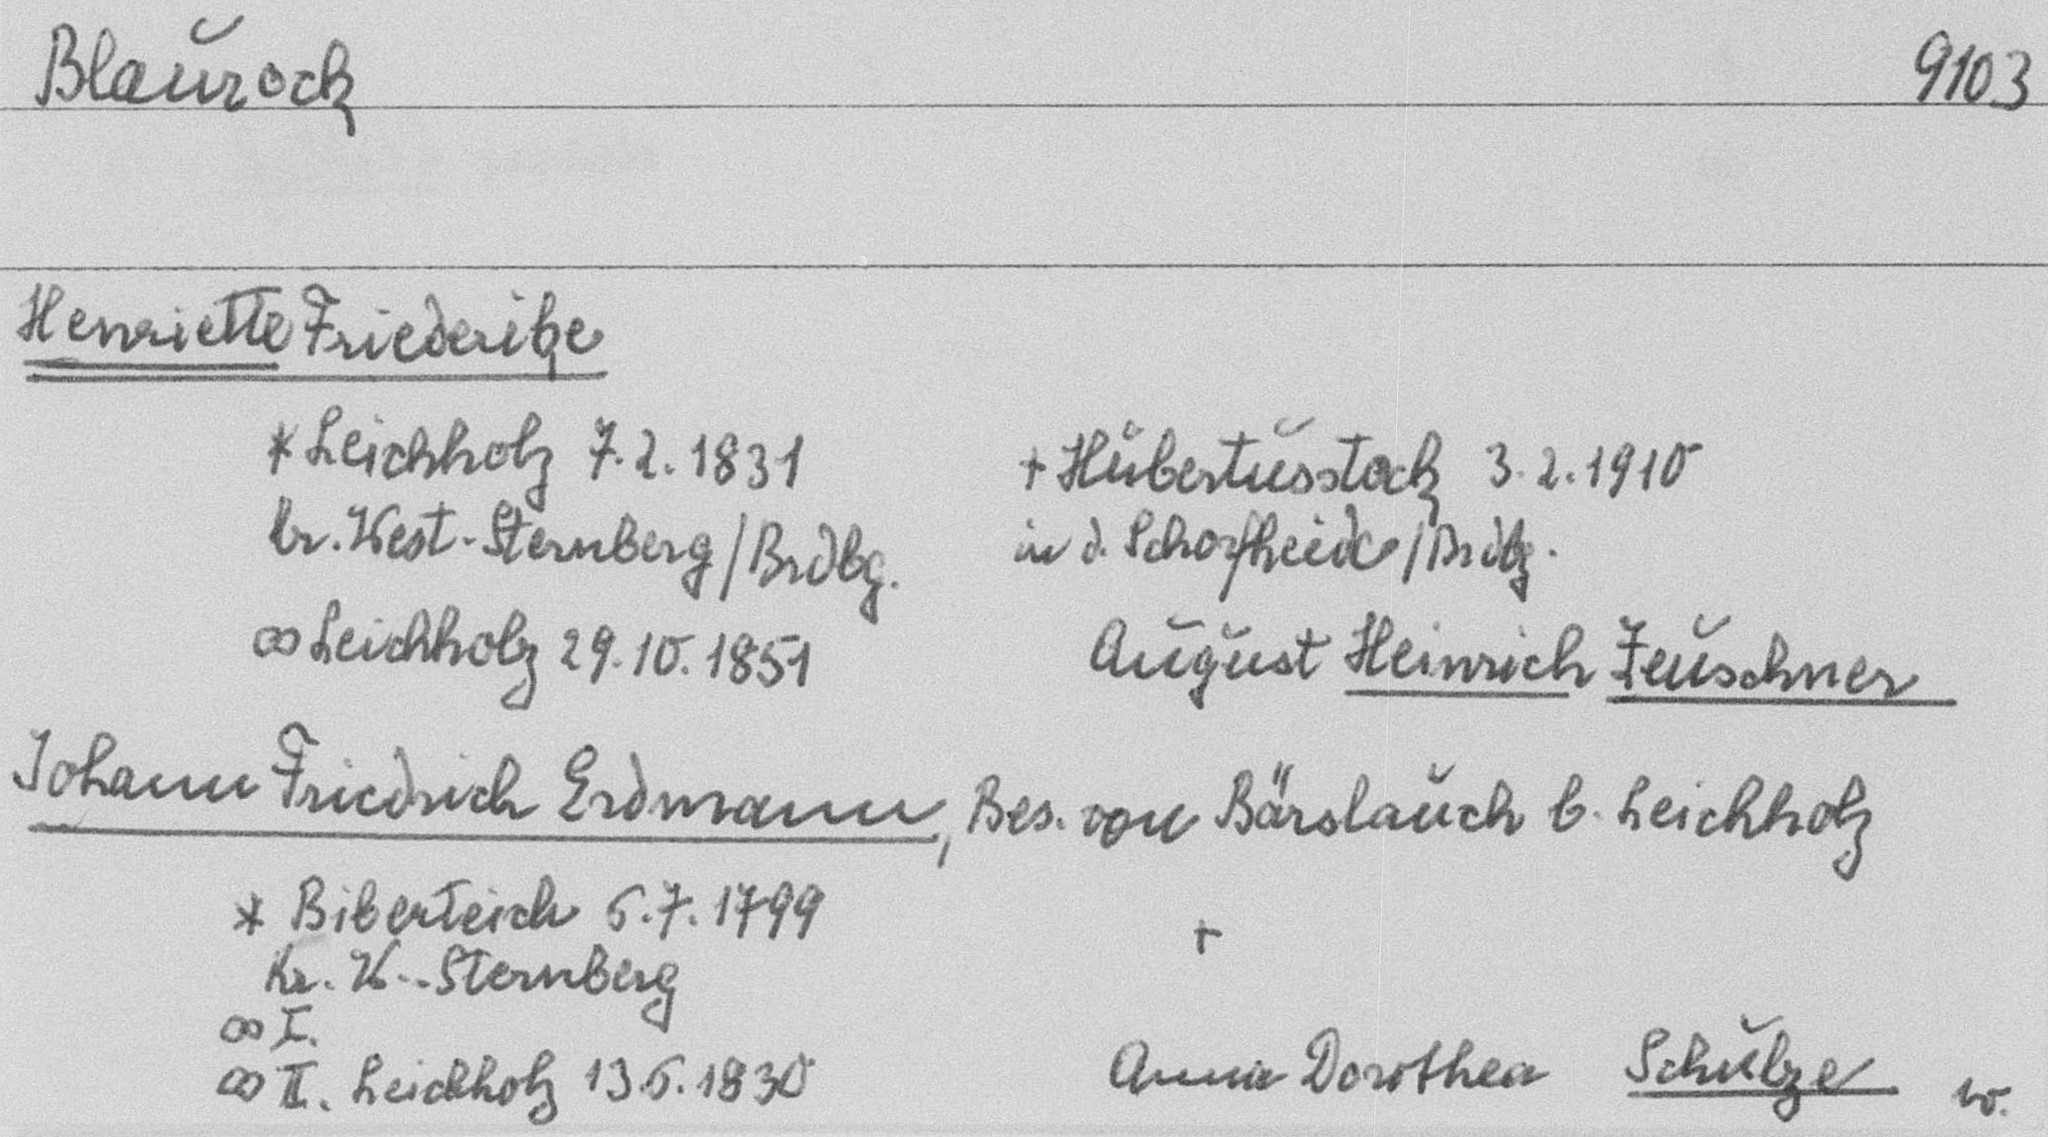 Blaurock 9103
Henriette Friederike
* Leichholz 7.2.1831 + Hubertusstock 3.2.1910
Kr. West-Sternberg/Brdbg. in d. Schorfheide/Brdbg.
∞ Leichholz 29.10.1851 August Heinrich Zeuschner
Johann Friedrich Erdmann, Bes. von Bärslauch b. Leichholz
* Biberteich 6.7.1799 +
Kr. W.-Sternberg
∞ I.
∞ II. Leichholz 13.6.1830 Anna Dorothea Schulze w.